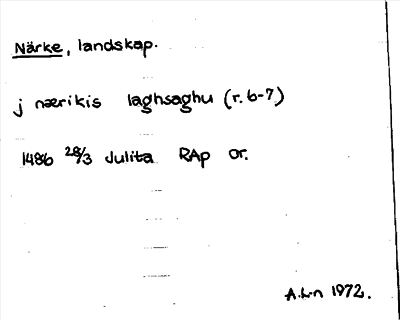 Närke, landskap.
j nærikis laghsaghu (r. 6-7)
1486 28/3 Julita RAp or.
A.L-n 1972.